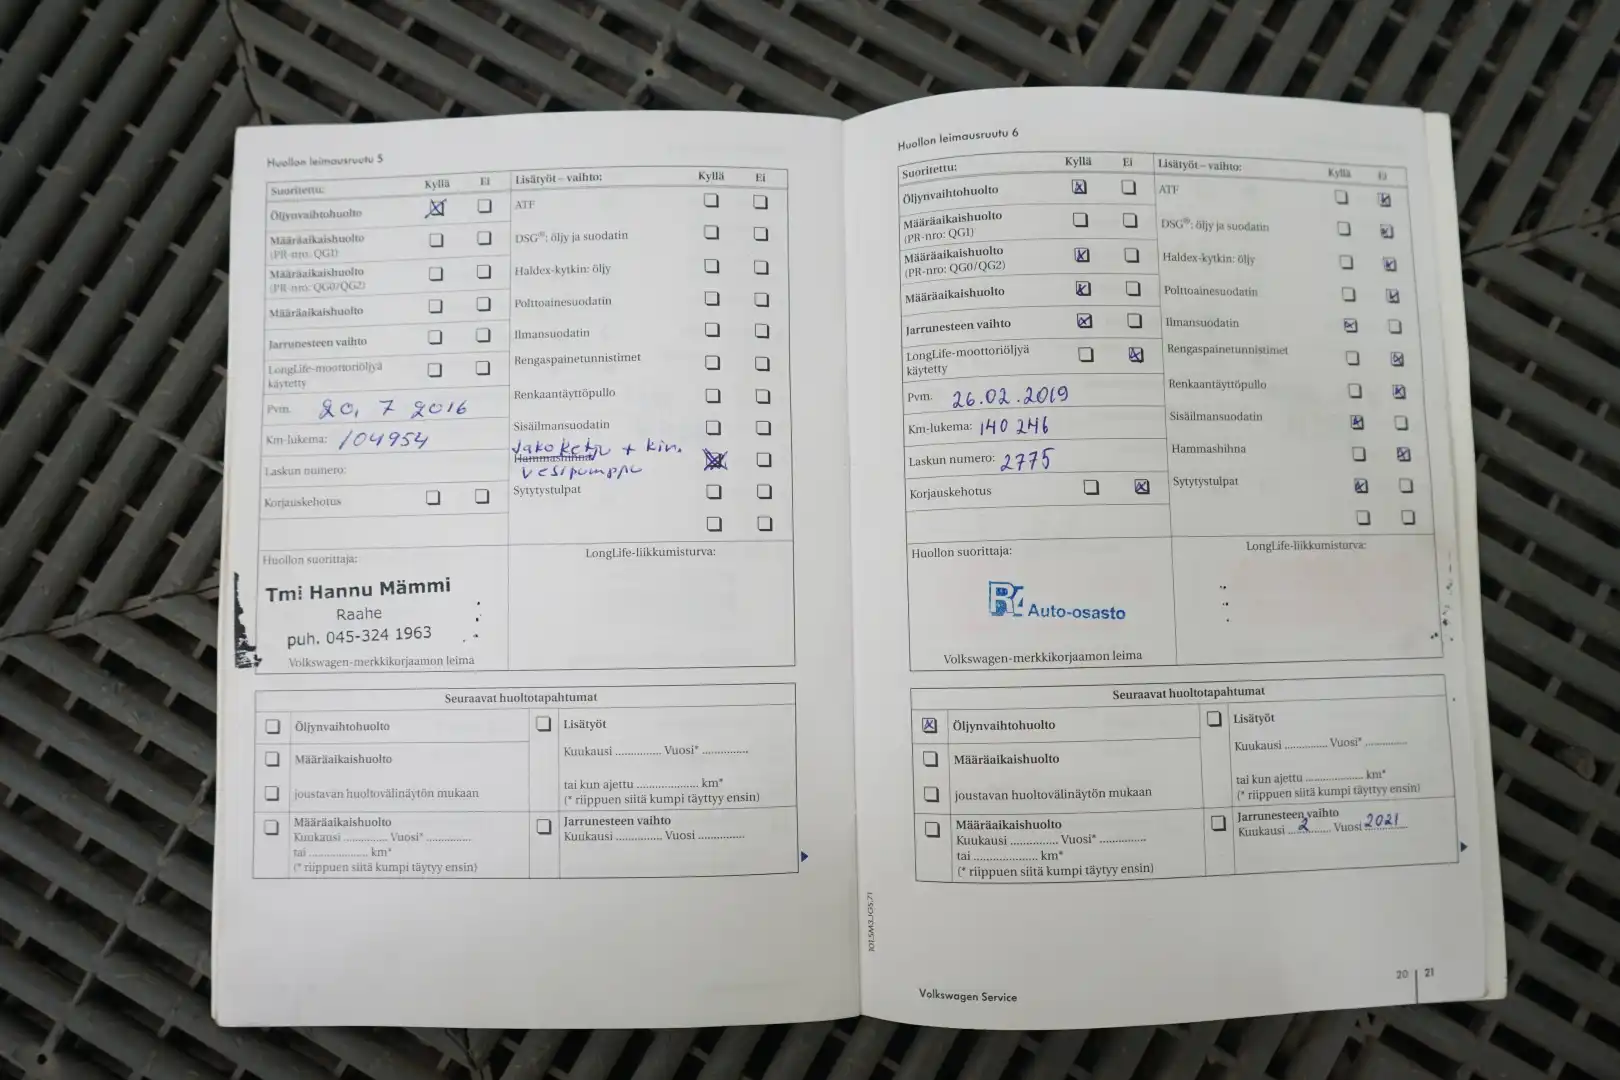 Huollon leimausruutu 5
Suoritettu: Kyllä Ei
Öljynvaihtohuolto
Määräaikaishuolto
(PR-nro: QG1)
Määräaikaishuolto
(PR-nro: QG0/QG2)
Määräaikaishuolto
Jarrunesteen vaihto
LongLife-moottoriöljyä
käytetty
Pvm. 20. 7 2016
Km-lukema: 104954
Laskun numero:
Korjauskehotus
Lisätyöt – vaihto: Kyllä Ei
ATF
DSG®: öljy ja suodatin
Haldex-kytkin: öljy
Polttoainesuodatin
Ilmansuodatin
Rengaspainetunnistimet
Renkaantäyttöpullo
Sisäilmansuodatin
Jakoketju + kir.
Hammashihna
vesipumppu
Sytytystulpat
Huollon suorittaja:
Tmi Hannu Mämmi
Raahe
puh. 045-324 1963
Volkswagen-merkkikorjaamon leima
LongLife-liikkumisturva:
Seuraavat huoltotapahtumat
Öljynvaihtohuolto
Määräaikaishuolto
joustavan huoltovälinäytön mukaan
Määräaikaishuolto
Kuukausi .............. Vuosi* ..............
tai .................... km*
(* riippuen siitä kumpi täytyy ensin)
Lisätyöt
Kuukausi .............. Vuosi* ..............
tai kun ajettu .................... km*
(* riippuen siitä kumpi täyttyy ensin)
Jarrunesteen vaihto
Kuukausi .............. Vuosi ..............
Huollon leimausruutu 6
Suoritettu: Kyllä Ei
Öljynvaihtohuolto
Määräaikaishuolto
(PR-nro: QG1)
Määräaikaishuolto
(PR-nro: QG0/QG2)
Määräaikaishuolto
Jarrunesteen vaihto
LongLife-moottoriöljyä
käytetty
Pvm. 26.02.2019
Km-lukema: 140 246
Laskun numero: 2775
Korjauskehotus
Lisätyöt – vaihto: Kyllä Ei
ATF
DSG®: öljy ja suodatin
Haldex-kytkin: öljy
Polttoainesuodatin
Ilmansuodatin
Rengaspainetunnistimet
Renkaantäyttöpullo
Sisäilmansuodatin
Hammashihna
Sytytystulpat
Huollon suorittaja:
Auto-osasto
Volkswagen-merkkikorjaamon leima
LongLife-liikkumisturva:
Seuraavat huoltotapahtumat
Öljynvaihtohuolto
Määräaikaishuolto
joustavan huoltovälinäytön mukaan
Määräaikaishuolto
Kuukausi .............. Vuosi* ..............
tai .................... km*
(* riippuen siitä kumpi täytyy ensin)
Lisätyöt
Kuukausi .............. Vuosi* ..............
tai kun ajettu .................... km*
(* riippuen siitä kumpi täytyy ensin)
Jarrunesteen vaihto
Kuukausi 2 Vuosi 2021
Volkswagen Service
20 | 21